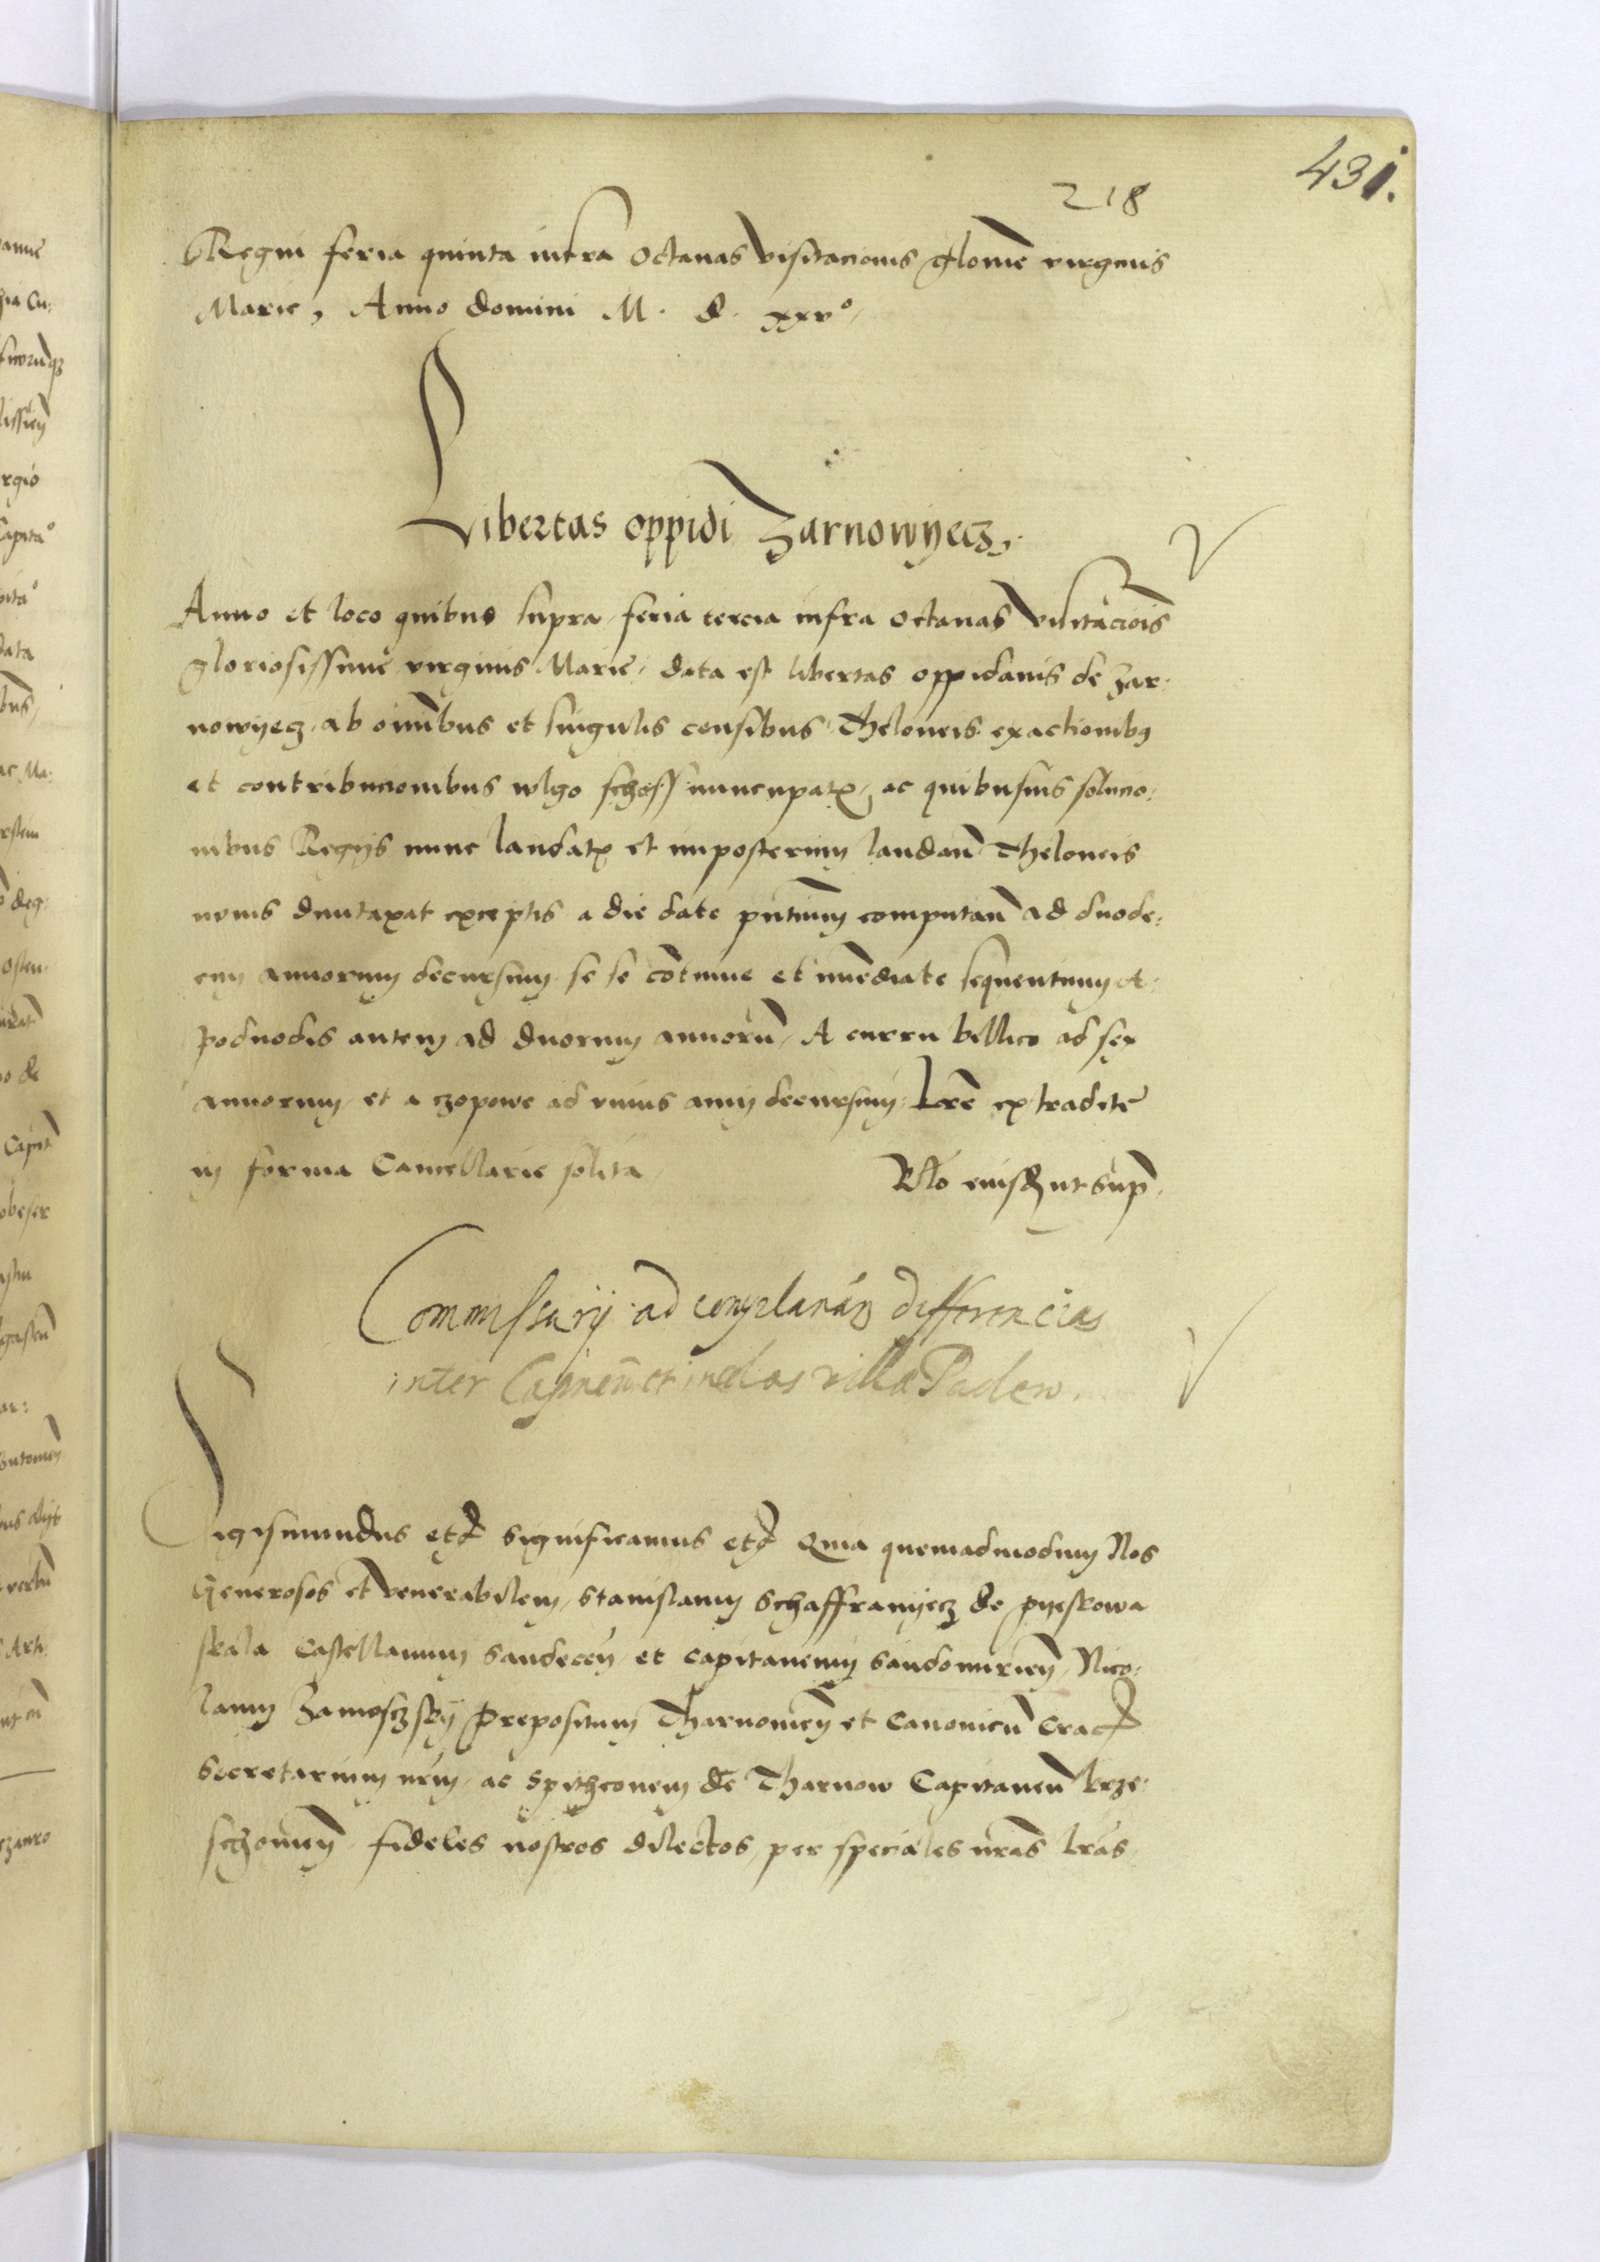 431.
218
Regni feria quinta infra octauas visitacionis glorme virginis
Marie, Anno domini M. d. xxvº
Libertas oppidi Zarnowyecz,
Anno et loco quibus supra feria tercia infra octauas visitacioīs
gloriosissime virginis Marie, data est libertas oppidanis de Zar:
nowyecz, ab oīnibus et singulis censibus Theloneis exactionibꝰ
et contribucionibus wlgo schoss nuncupatꝭ, ac quibusuis solucio:
nibus Regys nunc laudatꝭ et imposterum laudan̄ Theloneis
nouis duntaxat exceptis a die date pn̄tium computan̄ ad duode:
cim annorum decursum se se cōtinue et im̄ediate sequentium A:
poduodis autem ad duorum annorū, A curru bellico ad sex
annorum, et a czopowe ad vnius anni decursum Lrē extradite
in forma Cancellarie solita,
Rlō eiusdē ut sup̄.
Commissarij ad complanan̄ differencias
inter Capneū et incolas villa Padew.
Sigismundus etc̄ significamus etc̄ Quia quemadmodum Nos
Generosos et venerabilem, Stanislaum Schaffranyecz de pyeskowa
skala Castellanum Sandecēn et capitaneum Sandomirien̄, Nico:
laum Zamosczsky Prepositum Tharnouien̄ et Canonicū Crac̄
Secretarium nr̄m, ac Spithconem de Tharnow Capitaneū krze:
schouien̄ fideles nostros dilectos, per speciales nrās lrās,